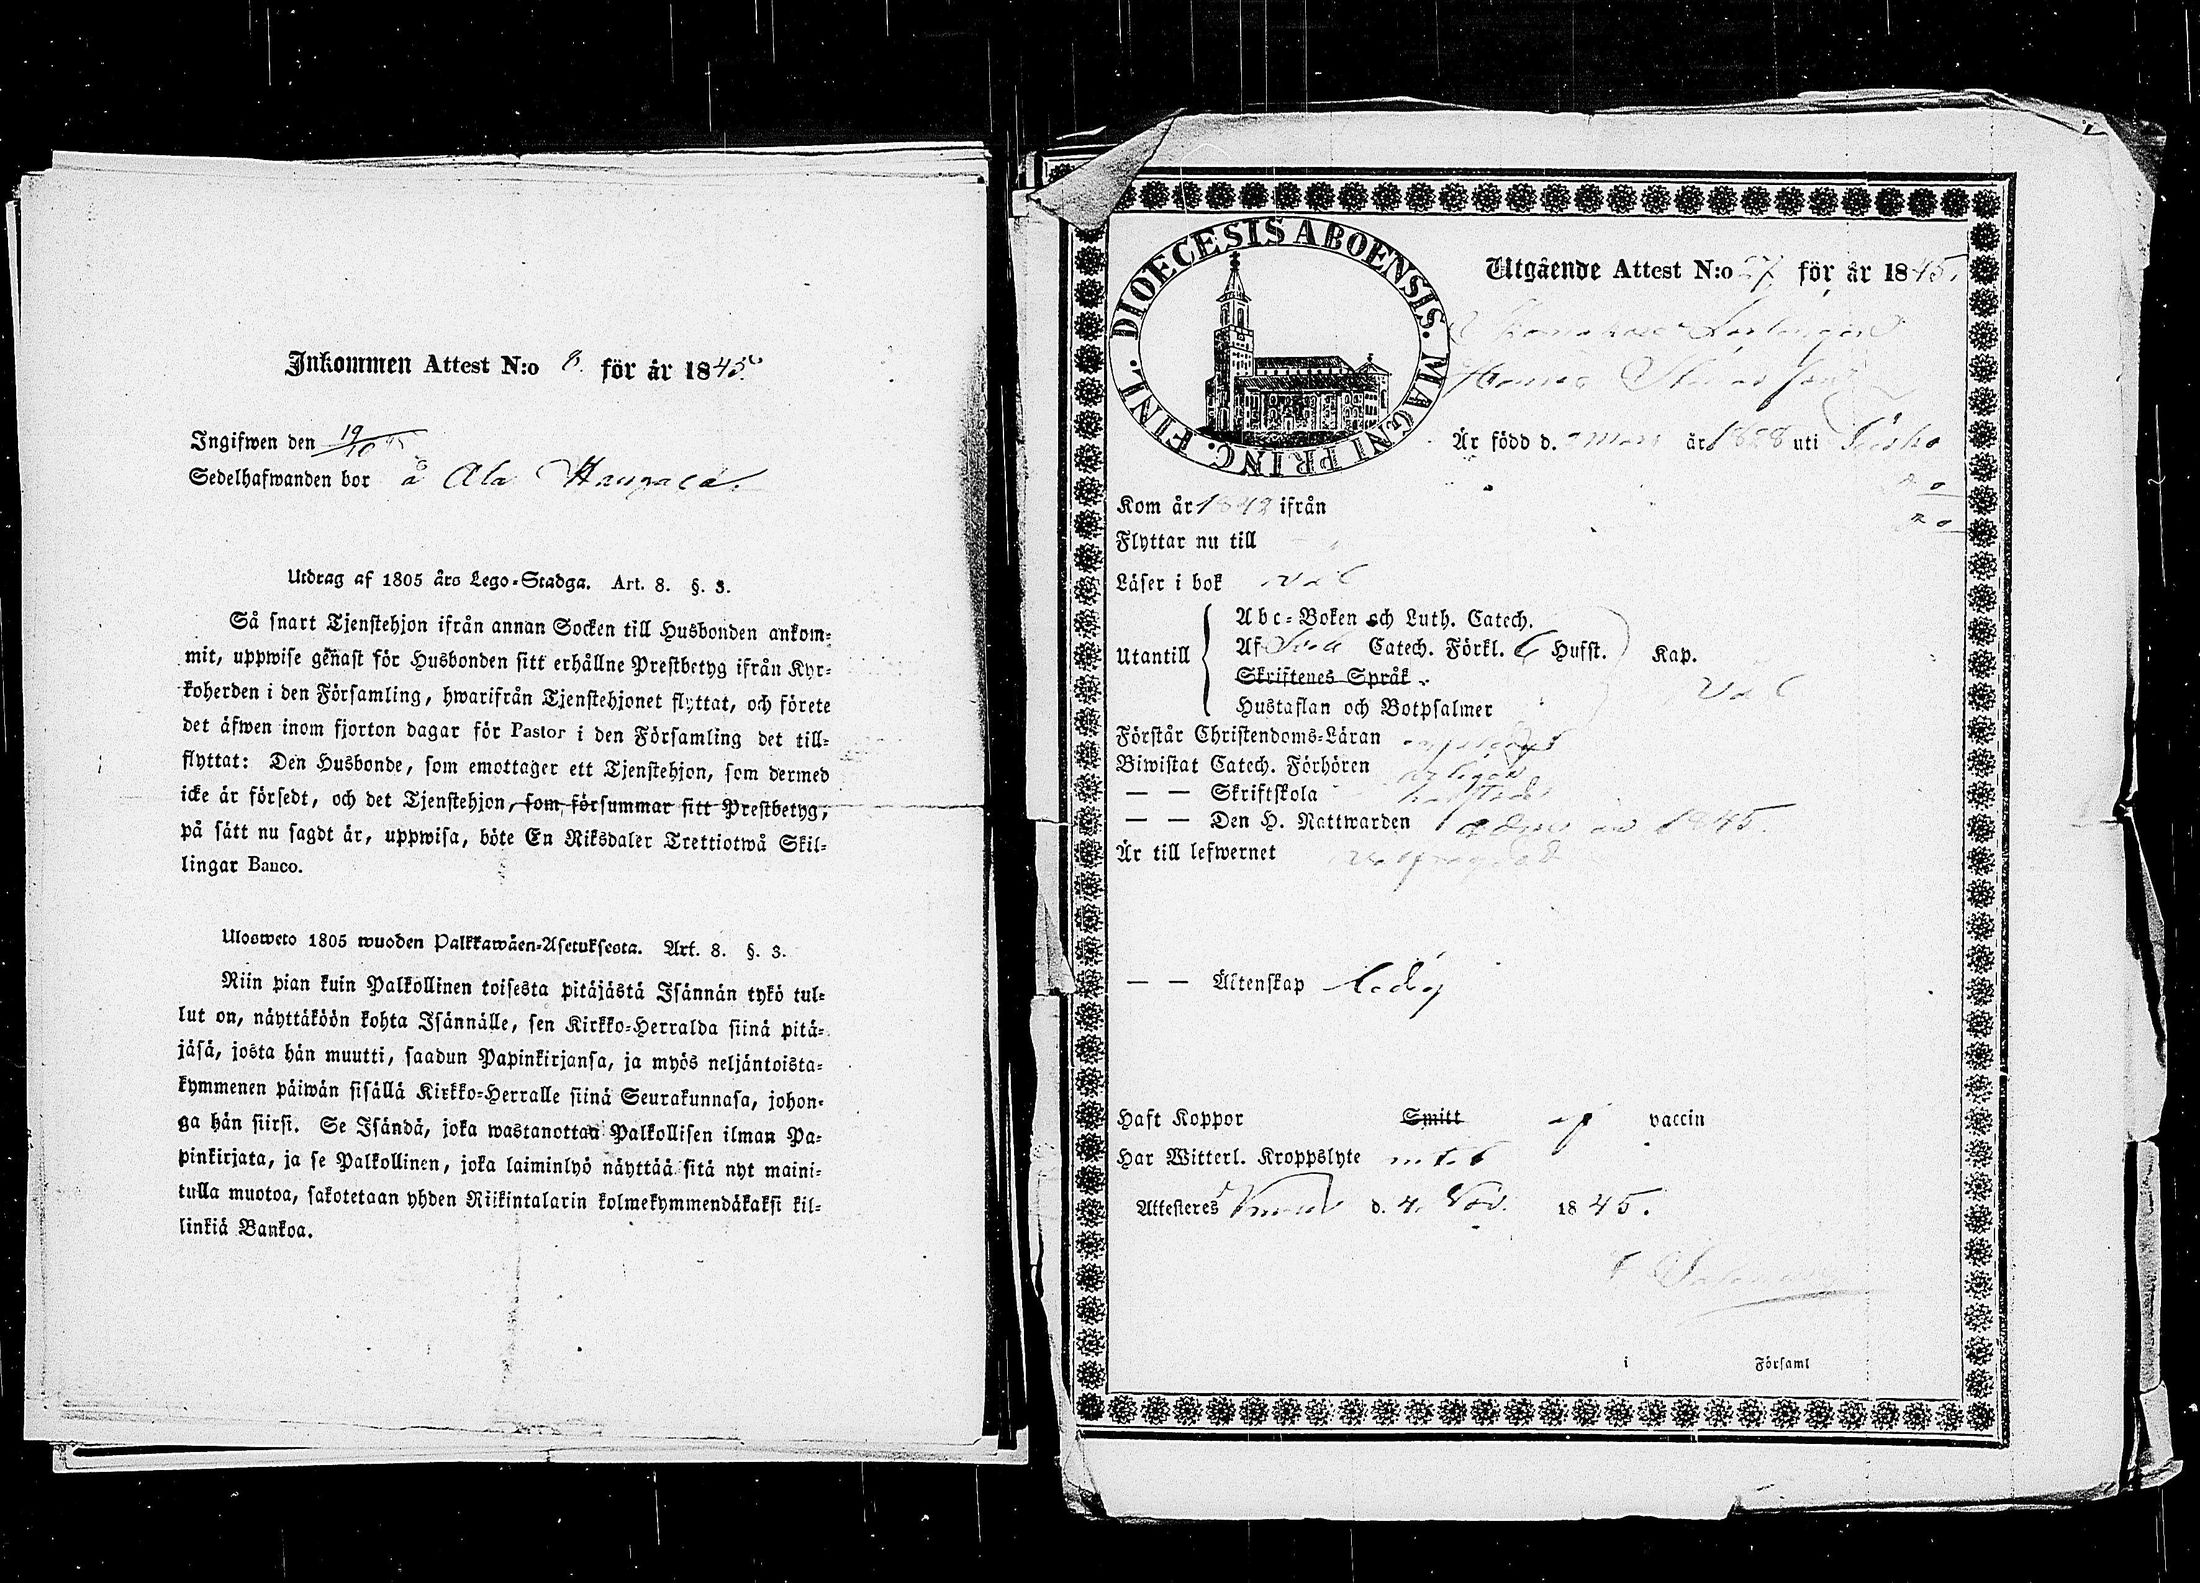 Inkommen Attest N:o 8. för år 1845.
Ingifwen den 19/10
Sedelhafwanden bor å Ala
Utdrag af 1805 års Lego-Stadga. Art. 8. §. 3.
Så snart Tjenstehjon ifrån annan Socken till Husbonden ankom-
mit, uppwise genast för Husbonden sitt erhållne Prestbetyg ifrån Kyr-
koherden i den Församling, hwarifrån Tjenstehjonet flyttat, och förete
det äfwen inom fjorton dagar för Pastor i den Församling det till-
flyttat: Den Husbonde, som emottager ett Tjenstehjon, som dermed
icke är försedt, och det Tjenstehjon, som försummar sitt Prestbetyg,
på sätt nu sagdt är, uppwisa, böte En Riksdaler Trettiotwå Skil-
lingar Banco.
Ulosweto 1805 wuoden Palkkawäen-Asetuksesta. Art. 8. §. 3.
Niin pian kuin Palkollinen toisesta pitäjästä Isännän tykö tul-
lut on, näyttäköön kohta Isännälle, sen Kirkko-Herralda siinä pitä-
jäsä, josta hän muutti, saadun Papinkirjansa, ja myös neljäntoista-
kymmenen päiwän sisällä Kirkko-Herralle siinä Seurakunnasa, johon-
ga hän siirsi. Se Isändä, joka wastanottaa Palkollisen ilman Pa-
pinkirjata, ja se Palkollinen, joka laiminlyö näyttää sitä nyt maini-
tulla muotoa, sakotetaan yhden Riikintalarin kolmekymmendäkaksi kil-
linkiä Bankoa.
DIOECESIS ABOENSIS. MAGNI PRINC. FINL.
Utgående Attest N:o 27 för år 1845.
Är född d. mars år 1828 uti
Kom år 1842 ifrån
Flyttar nu till
Läser i bok väl
Abc-Boken och Luth. Catech.
Utantill Af Catech. Förkl. Hufst. Kap.
Skriftenes Språk
Väl
Hustaflan och Botpsalmer
Förstår Christendoms-Läran
Biwistat Catech. Förhören årligen
— — Skriftskola
— — Den H. Nattwarden 1845.
Är till lefwernet
— — Äktenskap ledig
Haft Koppor Smitt af vaccin
Har Witterl. Kroppslyte intet
Attesteres d. 4. Nov. 1845.
i Församl